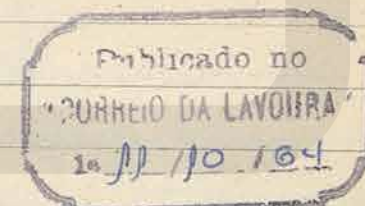 Publicado no
"CORREIO DA LAVOURA"
de 11/10/64